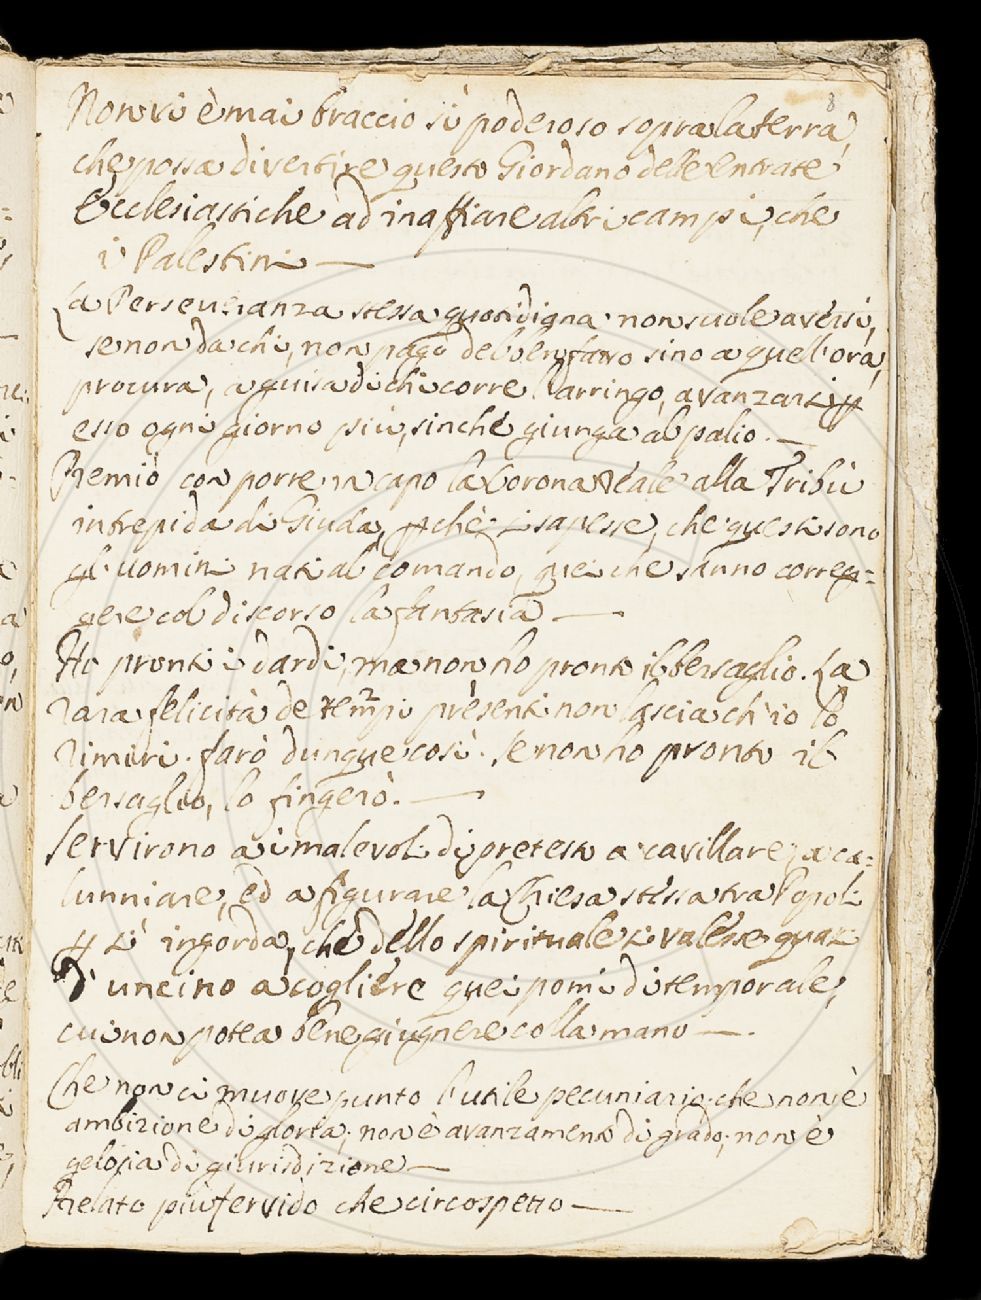 8
Non vi è mai braccio sì poderoso sopra la terra,
che possa divertire questo Giordano delle entrate
Ecclesiastiche ad inaffiare altri campi, che
i Palestini —
La Perseveranza stessa quotidiana non suole aversi,
se non da chi, non pago del ben fatto sino a quell'ora,
procura, a guisa di chi corre l'arringo, avanzarsi in
esso ogni giorno più, sinché giunga al palio. —
Premiò con porre in capo la Corona Reale alla Tribù
intrepida di Giuda, pchè si sapesse, che questi sono
gl'uomini nati al comando, quei che sanno correg=
gere col discorso la fantasia —
Ho pronti i dardi, ma non ho pronto il bersaglio. La
rara felicità de tempi presenti non lascia ch'io lo
rimiri. farò dunque così. Se non ho pronto il
bersaglio, lo fingerò. —
Servirono a i malevoli di pretesto a cavillare, a ca=
lunniare, ed a figurare la Chiesa stessa tra Popoli
p sì ingorda, che dello spirituale si valesse quasi
d'uncino a cogliere quei pomi di temporale,
cui non potea bene giugnere colla mano —.
Che non ci muove punto l'utile pecuniario, che non è
ambizione di gloria, non è avanzamento di grado, non è
gelosia di giurisdizione —
Prelato più fervido che circospetto —